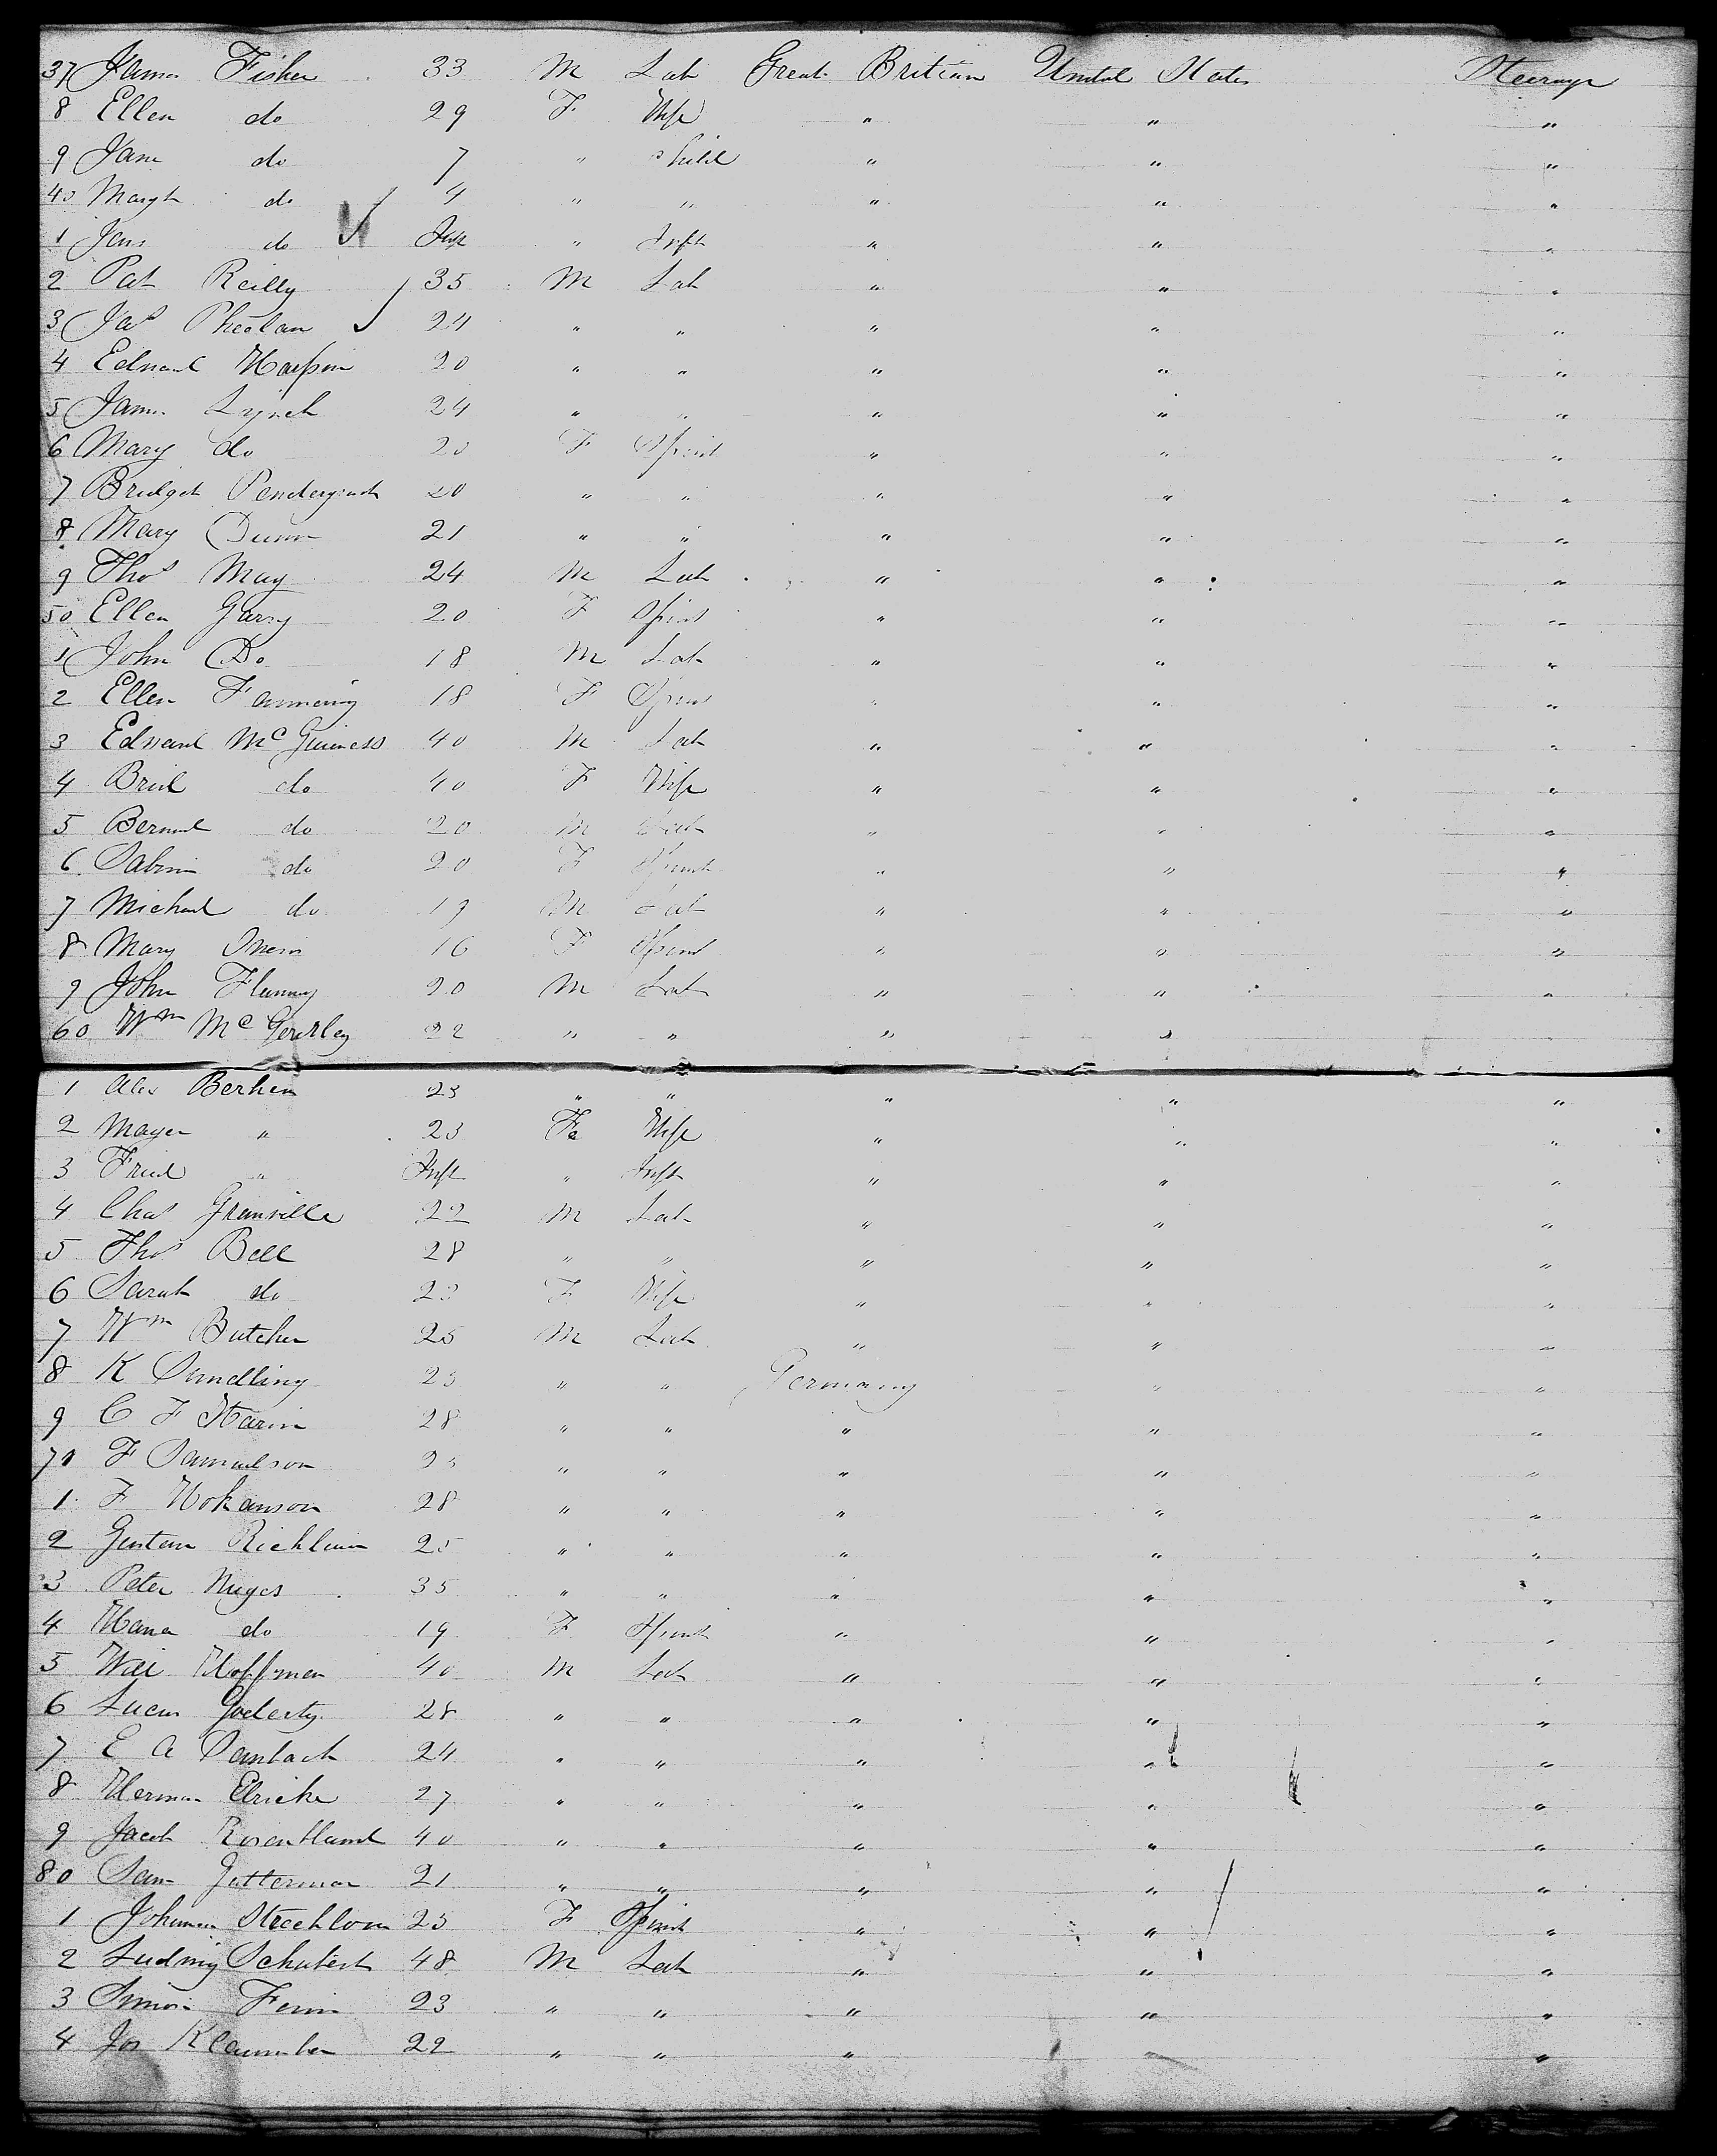 37 James Fisher 33 M Lab Great Britian United States Steerage
8 Ellen do 29 F Wife " " "
9 Jane do 7 " Child " " "
40 Margt do 4 " " " " "
1 do Inft " Inft " " "
2 Pat Reilly 35 M Lab " " "
3 Jas Pheelan 24 " " " " "
4 Edward 20 " " " " "
5 James Lynch 24 " " " " "
6 Mary do 20 F Spinst " " "
7 Bridget Pendergrast 20 " " " " "
8 Mary Dunn 21 " " " " "
9 Thos May 24 M Lab " " "
50 Ellen Garry 20 F Spinst " " "
1 John Do 18 M Lab " " "
2 Ellen Fannering 18 F Spinst " " "
3 Edward McGuiness 40 M Lab " " "
4 Brid do 40 F Wife " " "
5 Bernard do 20 M Lab " " "
6 Sabina do 20 F Spinst " " "
7 Michael do 19 M Lab " " "
8 Mary 16 F Spinst " " "
9 John Flanny 20 M Lab " " "
60 Wm 22 " " " " "
1 Alex Berhen 23 " " " " "
2 Mayer " 23 Fe Wife " " "
3 Fried " Inft " Inft " " "
4 Chas Granville 22 M Lab " " "
5 Thos Bell 28 " " " " "
6 Sarah do 23 F Wife " " "
7 Wm Butcher 25 M Lab " " "
8 K Sundling 23 " " Germany " "
9 C F Starin 28 " " " " "
70 F Samuelson 23 " " " " "
1 F Hokanson 28 " " " " "
2 Gustav 25 " " " " "
3 Peter Nuges 35 " " " " "
4 Hana do 19 F Spinst " " "
5 Will Hoffman 40 M Lab " " "
6 28 " " " " "
7 E A Danback 24 " " " " "
8 Herman Elricke 27 " " " " "
9 Jacob 40 " " " " "
80 Sam Gutterman 21 " " " " "
1 25 F Spinst " " "
2 Ludwig Schubert 48 M Lab " " "
3 Simon 23 " " " " "
4 Jos 22 " " " " "